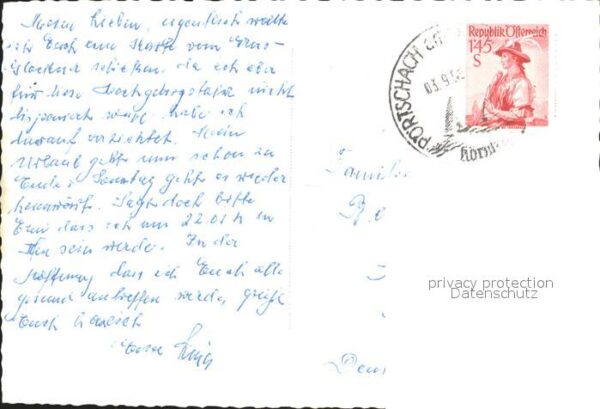 Meine Lieben, eigentlich wollte
ich Euch eine Karte vom Gross-
glockner schicken, da ich aber
für diese Hochgebirgstour nicht
disponiert war, habe ich
darauf verzichtet. Mein
Urlaub geht nun schon zu
Ende, Sonntag geht es wieder
heimwärts. Sagt doch bitte
dass ich um 22.01 h in
sein werde. In der
Hoffnung, dass ich Euch alle
gesund antreffen werde, grüße
Euch herzlich
Euer
Republik Österreich
1.45
S
PÖRTSCHACH
03.9.5
Kärnt
Familie
privacy protection
Datenschutz